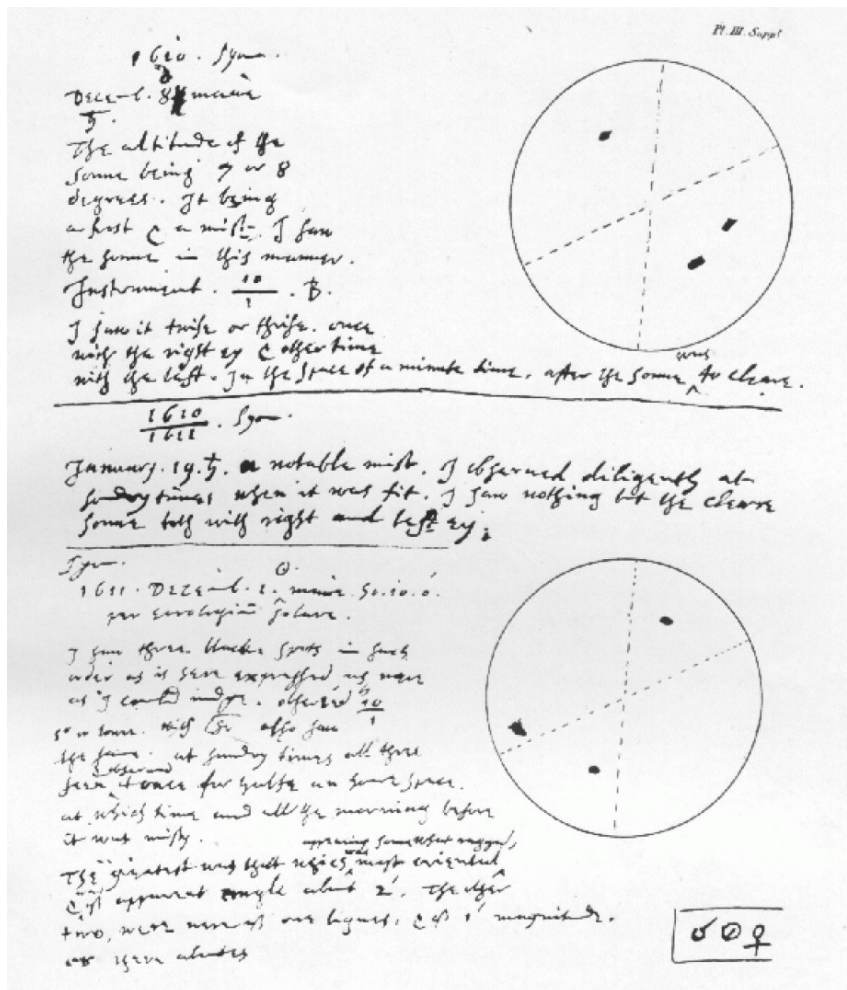 Pl. III. Suppt
1610. Syon.
Decemb. 8 mane ♄.
The altitude of the
sonne being 7 or 8
degrees. It being
a frost & a mist. I saw
the sonne in this manner.
Instrument. 10/1. B.
I saw it twise or thrise. once
with the right ey & other time
with the left. In the space of a minute time, after the sonne was to cleare.
1610/1611. Syon.
January. 19. ♄. a notable mist. I observed diligently at
sondry times when it was fit. I saw nothing but the cleare
sonne both with right and left ey.
Syon.
☉.
1611. Decemb. 1. mane. 10. 0.
per horologium solare.
I saw three blacke spots in such
order as is here expressed as nere
as I could judge. observed 10/1
also saw
the same. at sundry times all three
at once for halfe an houre space.
at which time and all the morning before
it was misty.
appearing somewhat ragged,
The greatest was that which was most oriental
& of apparent angle about 2'. The other
two, were nere of one bignes. & of 1' magnitude.
or there aboutes
♂ ☉ ♀